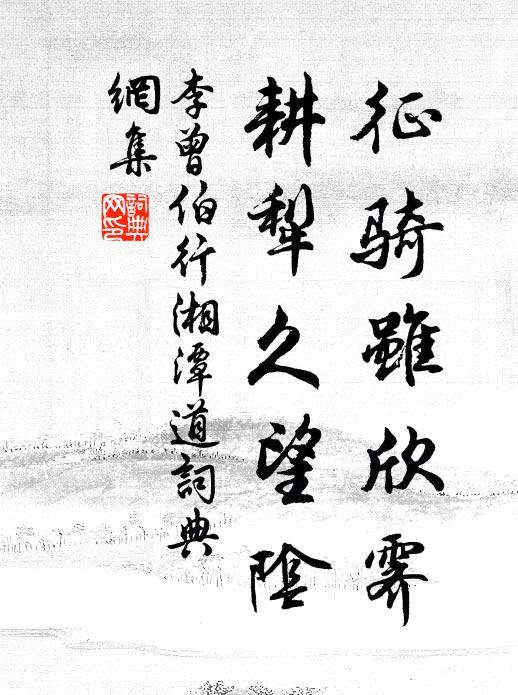 征骑雖欣霽
耕犁久望陰
李曾伯行湘潭道詞典
網集
詞典
网印